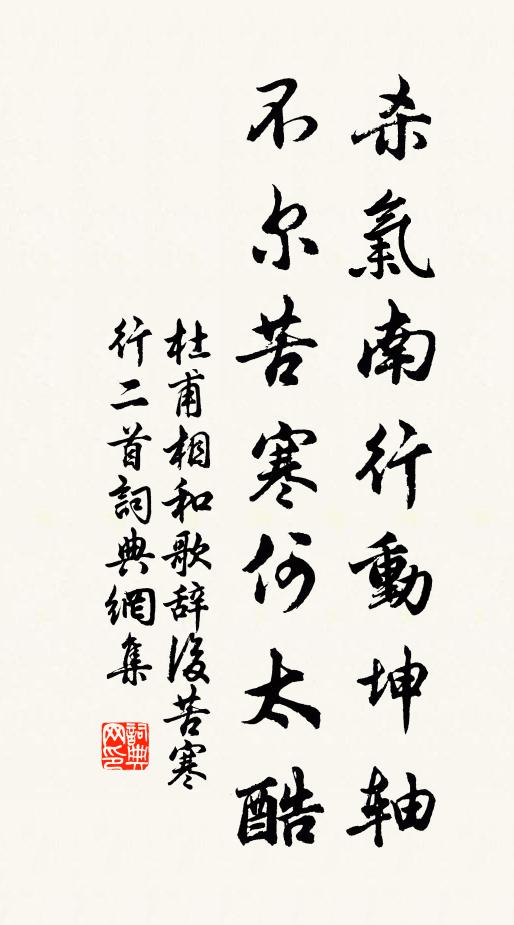 杀氣南行動坤軸
不尔苦寒何太酷
杜甫相和歌辞後苦寒
行二首詞典網集
詞典網印